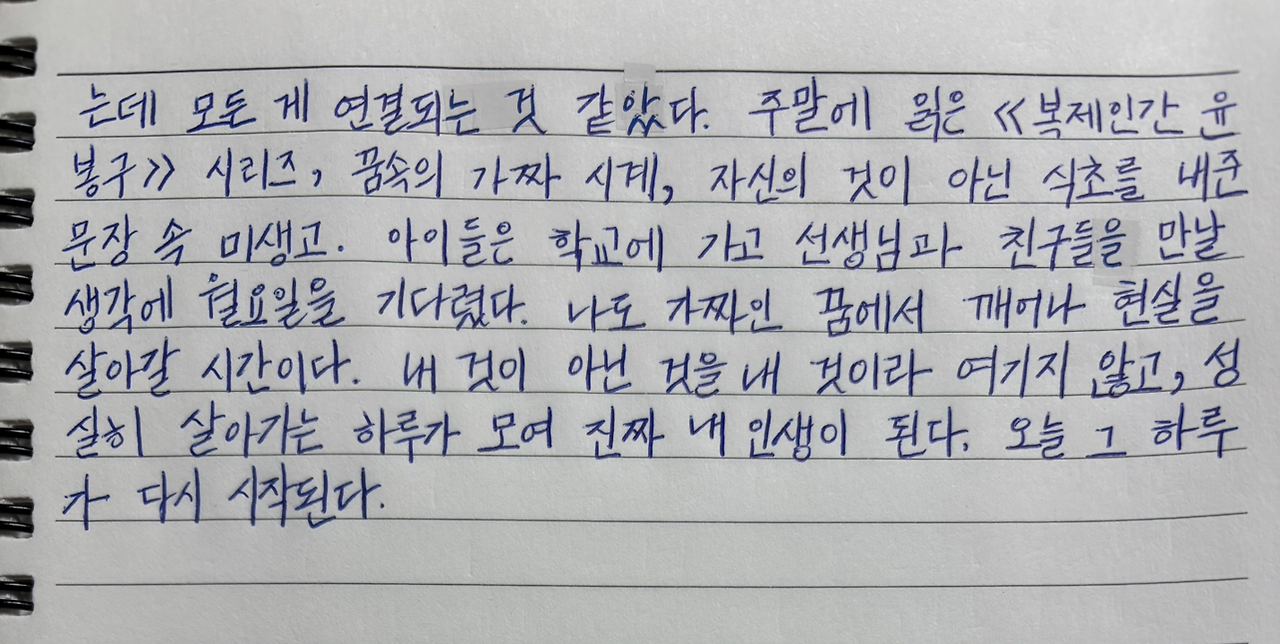 는데 모든 게 연결되는 것 같았다. 주말에 읽은 《복제인간 윤
봉구》 시리즈, 꿈속의 가짜 시계, 자신의 것이 아닌 식초를 내준
문장 속 미생고. 아이들은 학교에 가고 선생님과 친구들을 만날
생각에 월요일을 기다렸다. 나도 가짜인 꿈에서 깨어나 현실을
살아갈 시간이다. 내 것이 아닌 것을 내 것이라 여기지 않고, 성
실히 살아가는 하루가 모여 진짜 내 인생이 된다. 오늘 그 하루
가 다시 시작된다.